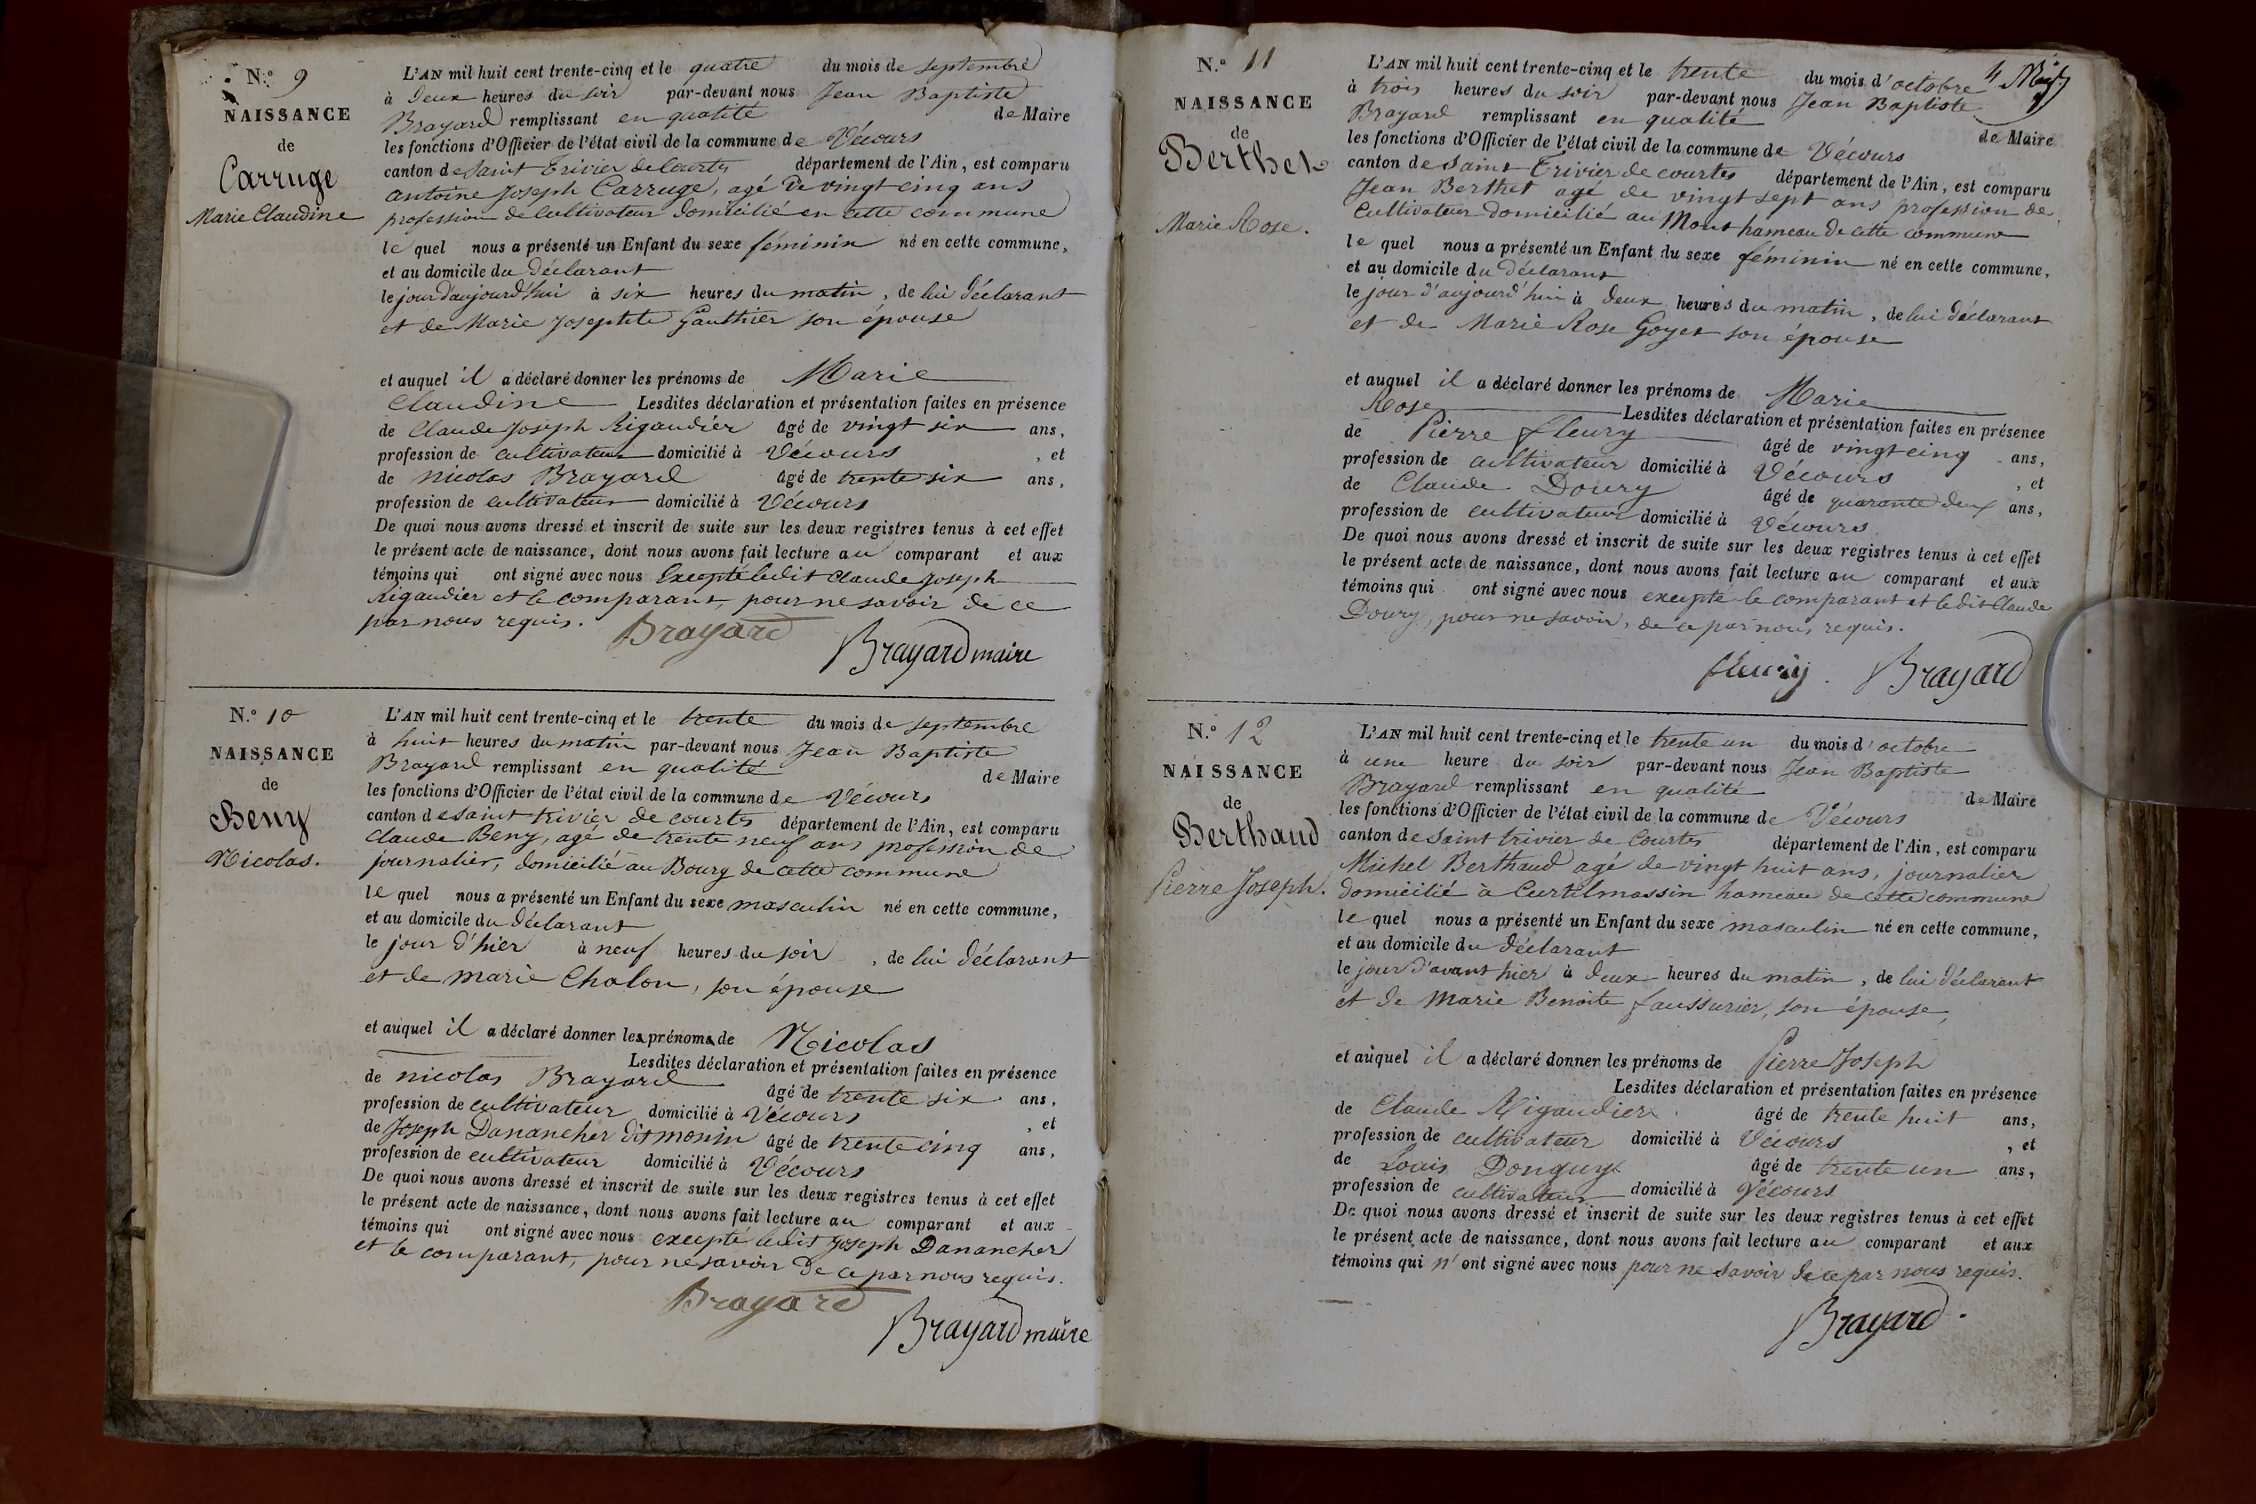 N.° 9
NAISSANCE
de
Carruge
Marie Claudine
L'AN mil huit cent trente-cinq et le quatre du mois de septembre
à deux heures du soir par-devant nous Jean Baptiste
Brayard remplissant en qualité de Maire
les fonctions d'Officier de l'état civil de la commune de Vécours
canton de Saint Trivier de Courtes département de l'Ain, est comparu
antoine Joseph Carruge, agé de vingt cinq ans
profession de Cultivateur domicilié en cette commune
le quel nous a présenté un Enfant du sexe féminin né en cette commune,
et au domicile du déclarant
le jour d'aujourd'hui à six heures du matin, de lui déclarant
et de Marie Josephte Gauthier son épouse
et auquel il a déclaré donner les prénoms de Marie
Claudine Lesdites déclaration et présentation faites en présence
de Claude Joseph Rigaudier âgé de vingt six ans,
profession de cultivateur domicilié à Vécours, et
de nicolas Brayard âgé de trente six ans,
profession de cultivateur domicilié à Vécours
De quoi nous avons dressé et inscrit de suite sur les deux registres tenus à cet effet
le présent acte de naissance, dont nous avons fait lecture au comparant et aux
témoins qui ont signé avec nous Excepté ledit Claude Joseph
Rigaudier et le comparant, pour ne savoir de ce
par nous requis.
Brayard
Brayard maire
N.° 10
NAISSANCE
de
Beny
Nicolas.
L'AN mil huit cent trente-cinq et le trente du mois de septembre
à huit heures du matin par-devant nous Jean Baptiste
Brayard remplissant en qualité de Maire
les fonctions d'Officier de l'état civil de la commune de Vécours
canton de saint trivier de courtes département de l'Ain, est comparu
Claude Beny, agé de trente neuf ans profession de
journalier, domicilié au Bourg de cette commune
le quel nous a présenté un Enfant du sexe masculin né en cette commune,
et au domicile du déclarant
le jour d'hier à neuf heures du soir, de lui déclarant
et de marie Chalon, son épouse
et auquel il a déclaré donner les prénoms de Nicolas
Lesdites déclaration et présentation faites en présence
de nicolas Brayard âgé de trente six ans,
profession de cultivateur domicilié à Vécours, et
de Joseph Danancher dit monin âgé de trente cinq ans,
profession de cultivateur domicilié à Vécours
De quoi nous avons dressé et inscrit de suite sur les deux registres tenus à cet effet
le présent acte de naissance, dont nous avons fait lecture au comparant et aux
témoins qui ont signé avec nous excepté ledit Joseph Danancher
et le comparant, pour ne savoir de ce par nous requis.
Brayard
Brayard maire
N.° 11
NAISSANCE
de
Berthet
Marie Rose.
L'AN mil huit cent trente-cinq et le trente du mois d'octobre 4
à trois heures du soir par-devant nous Jean Baptiste
Brayard remplissant en qualité de Maire
les fonctions d'Officier de l'état civil de la commune de Vécours
canton de Saint Trivier de courtes département de l'Ain, est comparu
Jean Berthet agé de vingt sept ans profession de
Cultivateur domicilié au Mont hameau de cette commune
le quel nous a présenté un Enfant du sexe féminin né en cette commune,
et au domicile du déclarant
le jour d'aujourd'hui à deux heures du matin, de lui déclarant
et de Marie Rose Goyet son épouse
et auquel il a déclaré donner les prénoms de Marie
Rose Lesdites déclaration et présentation faites en présence
de Pierre fleury âgé de vingt cinq ans,
profession de cultivateur domicilié à Vécours, et
de Claude Doury âgé de quarante deux ans,
profession de cultivateur domicilié à Vécours
De quoi nous avons dressé et inscrit de suite sur les deux registres tenus à cet effet
le présent acte de naissance, dont nous avons fait lecture au comparant et aux
témoins qui ont signé avec nous excepté le comparant et ledit Claude
Doury, pour ne savoir, de ce par nous requis.
fleury.
Brayard
N.° 12
NAISSANCE
de
Berthaud
Pierre Joseph.
L'AN mil huit cent trente-cinq et le trente un du mois d'octobre
à une heure du soir par-devant nous Jean Baptiste
Brayard remplissant en qualité de Maire
les fonctions d'Officier de l'état civil de la commune de Vécours
canton de Saint trivier de Courtes département de l'Ain, est comparu
Michel Berthaud agé de vingt huit ans, journalier
domicilié à Curtilmassin hameau de cette commune
le quel nous a présenté un Enfant du sexe masculin né en cette commune,
et au domicile du déclarant
le jour d'avant hier à deux heures du matin, de lui déclarant
et de Marie Benoite faussurier, son épouse,
et auquel il a déclaré donner les prénoms de Pierre Joseph
Lesdites déclaration et présentation faites en présence
de Claude Rigaudier âgé de trente huit ans,
profession de cultivateur domicilié à Vécours, et
de Louis Donguy âgé de trente un ans,
profession de cultivateur domicilié à Vécours
De quoi nous avons dressé et inscrit de suite sur les deux registres tenus à cet effet
le présent acte de naissance, dont nous avons fait lecture au comparant et aux
témoins qui n'ont signé avec nous pour ne savoir de ce par nous requis.
Brayard.